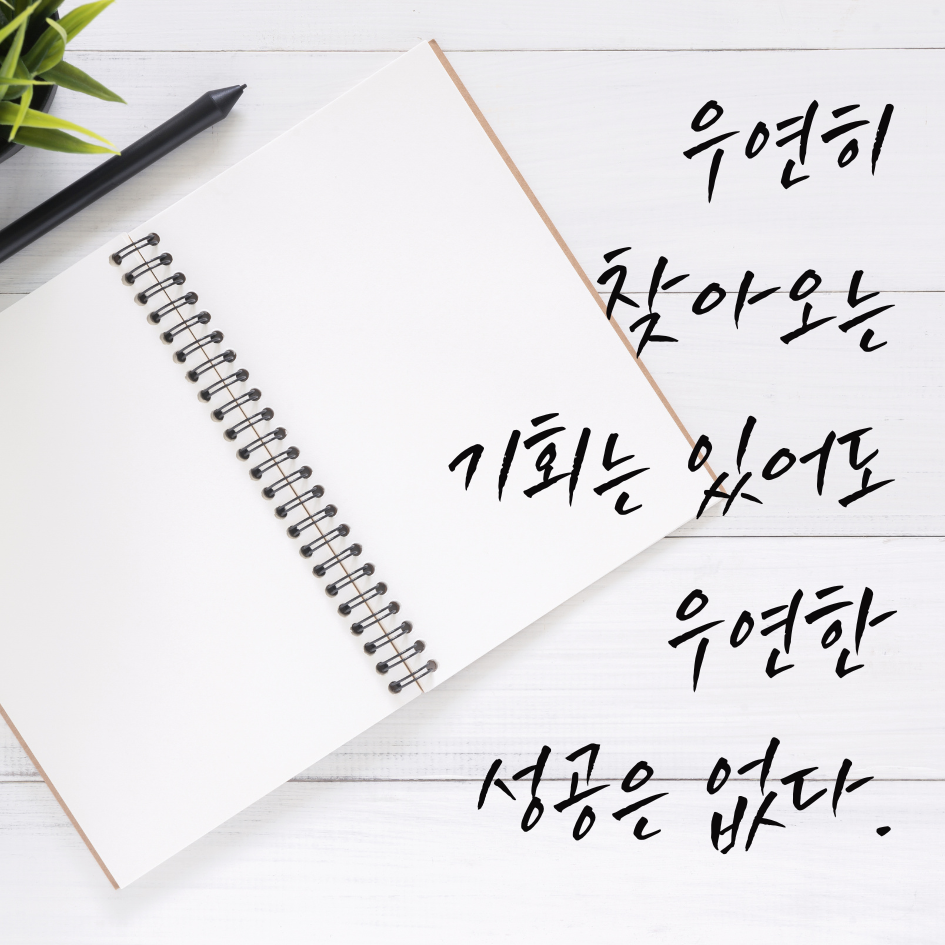 우연히
찾아오는
기회는 있어도
우연한
성공은 없다.